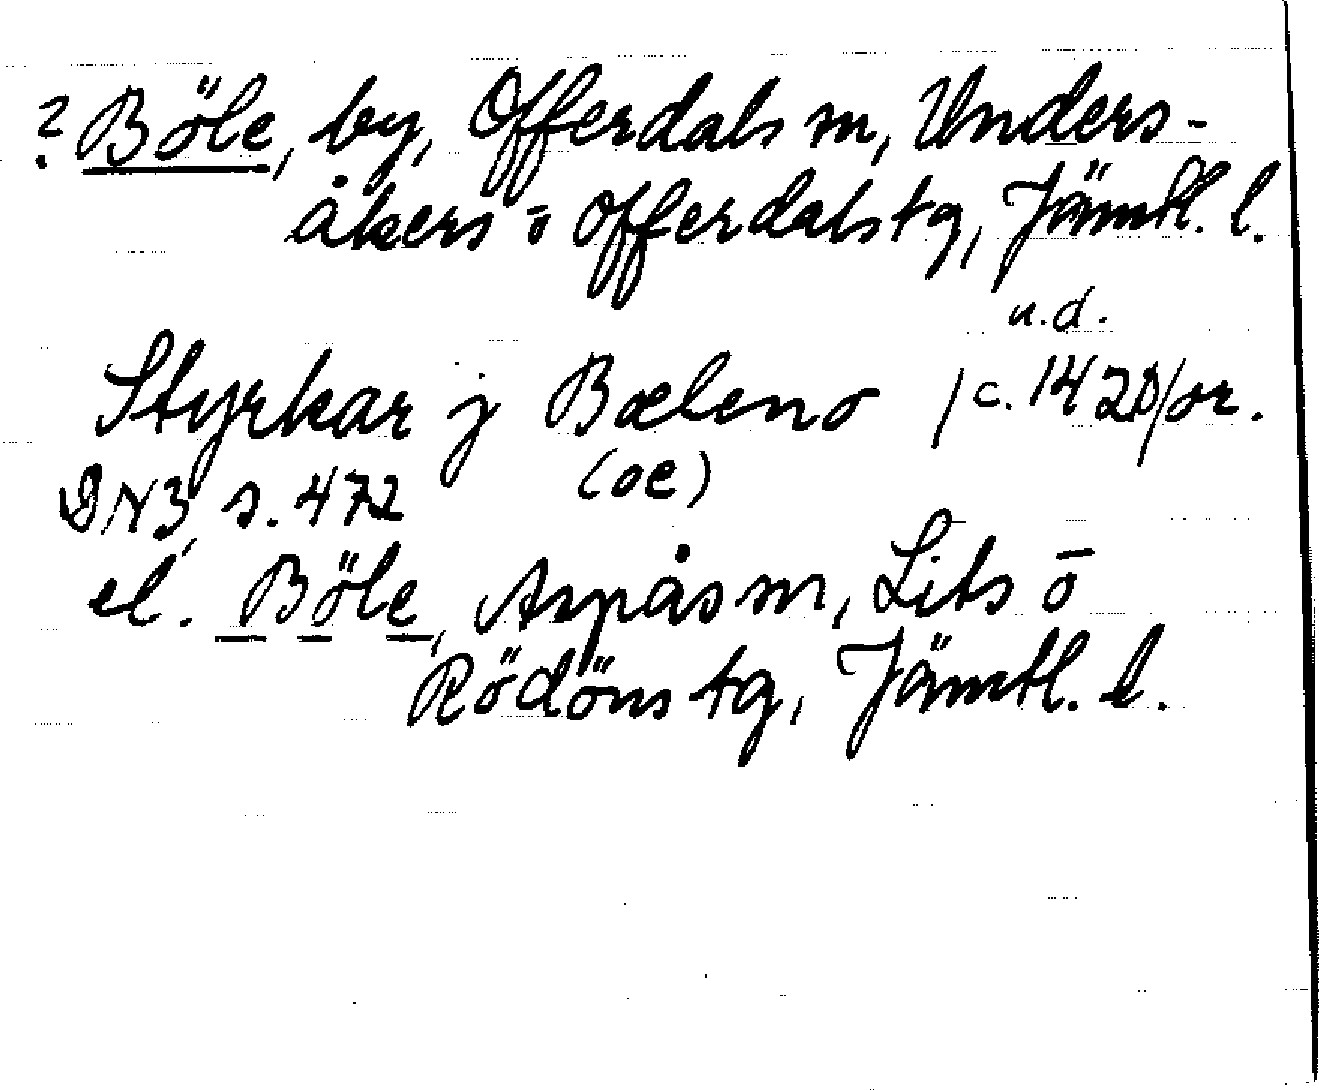 ? Böle, by, Offerdals sn, Unders-
åkers o offerdals tg, Jämtl. l.
u.d.
Styrkar j Bæleno / c. 1420/or.
DN3, s. 472 (oe)
el. Böle, Aspås sn, Lits o
Rödöns tg, Jämtl. l.